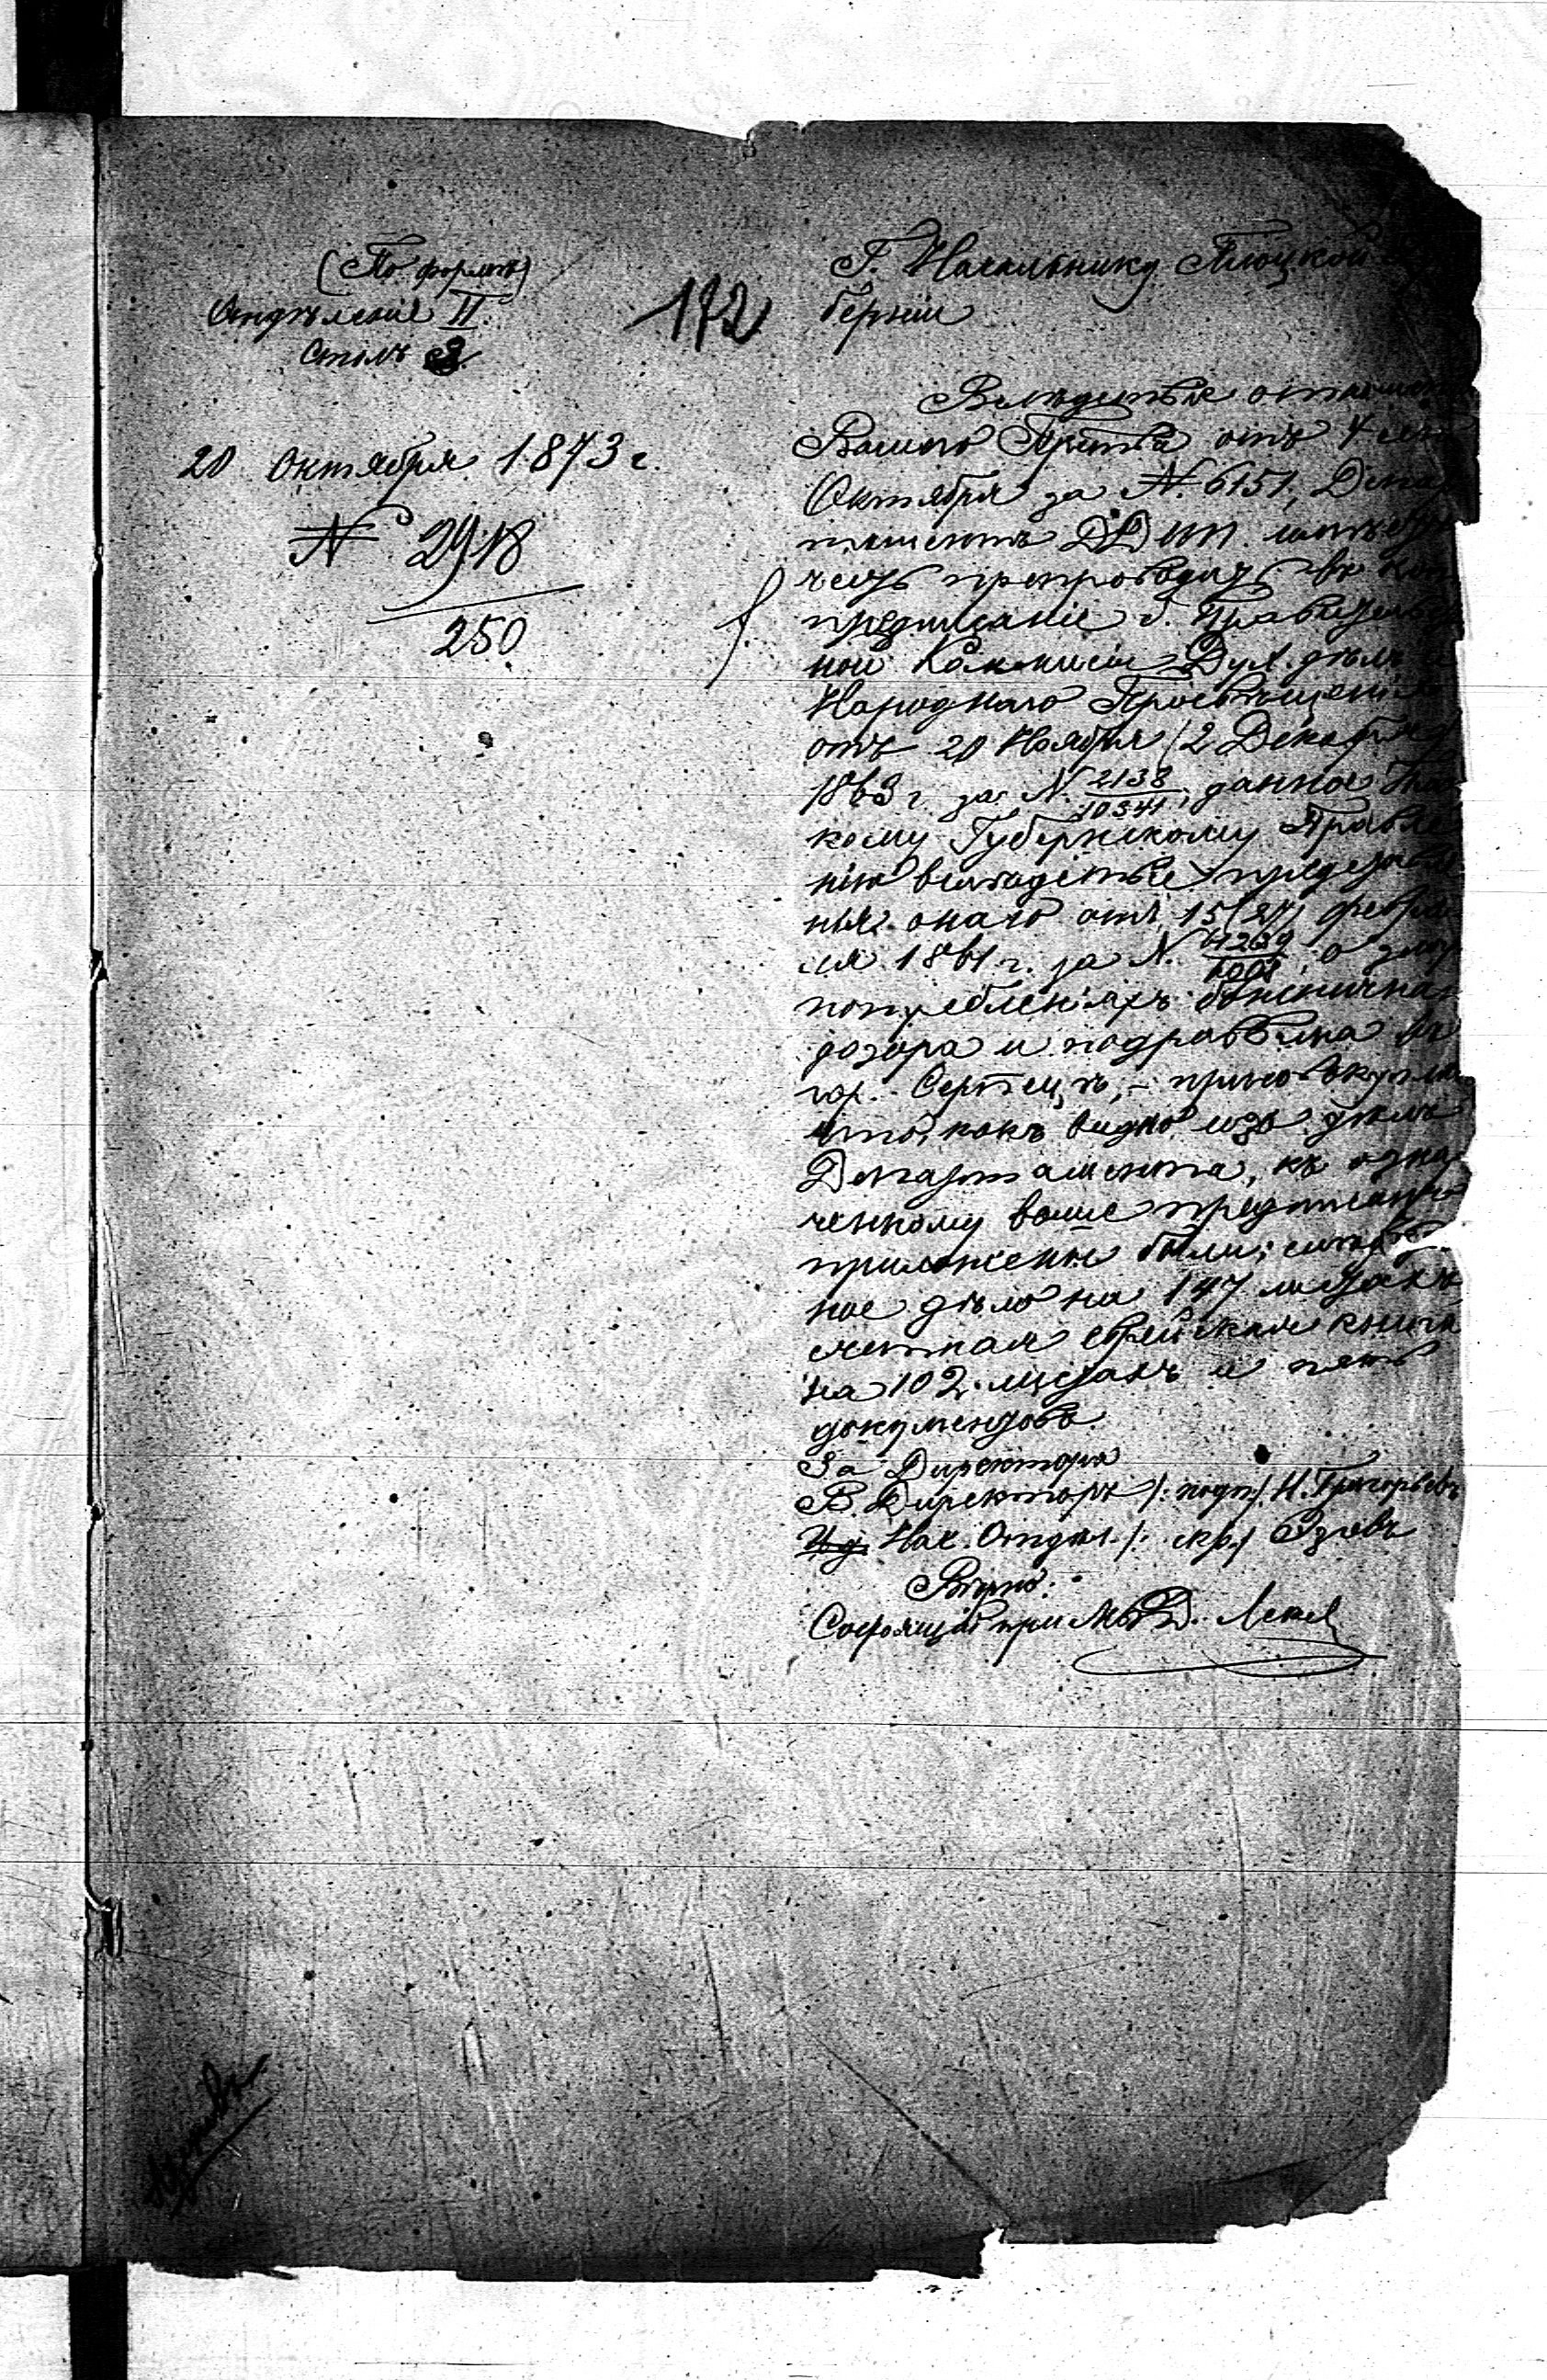 (По формѣ)
Отдѣленіе II.
Столъ 3.
20 Октября 1873 г.
№ 2918
250
172
Г. Начальнику Плоцкой
берніи
Вслѣдствіе отношенія
Вашего Пр-ства отъ 4 сего
Октября за N. 6151, Депар
таментъ ДДИИ. имѣетъ
честь препроводить въ
предписаніе б. Правительствен
ной Коммисіи Дух. дѣлъ и
Народнаго Просвѣщенія
отъ 20 Ноября /2 Декабря/
1863 г. за N. 2138/10341, данное
кому Губернскому Правле
нію вслѣдствіе представле
нія онаго отъ 15/27 Февра
ля 1861 г. за N. о зло
потребленіяхъ божничнаго
дозора и подраввина въ
гор. Серпецъ, – присовокупляя
что, какъ видно изъ дѣлъ
Департамента, къ озна
ченному выше предписанію
приложены были: слѣдствен
ное дѣло на 147 листахъ,
счетная еврейская книга
на 102 листахъ и пять
документовъ.
За Директора
В. Директоръ /: подп:/ Н. Григорьевъ
Нач. Отдѣл. /: скр:/
Вѣрно:
Состоящій при М.В.Д.